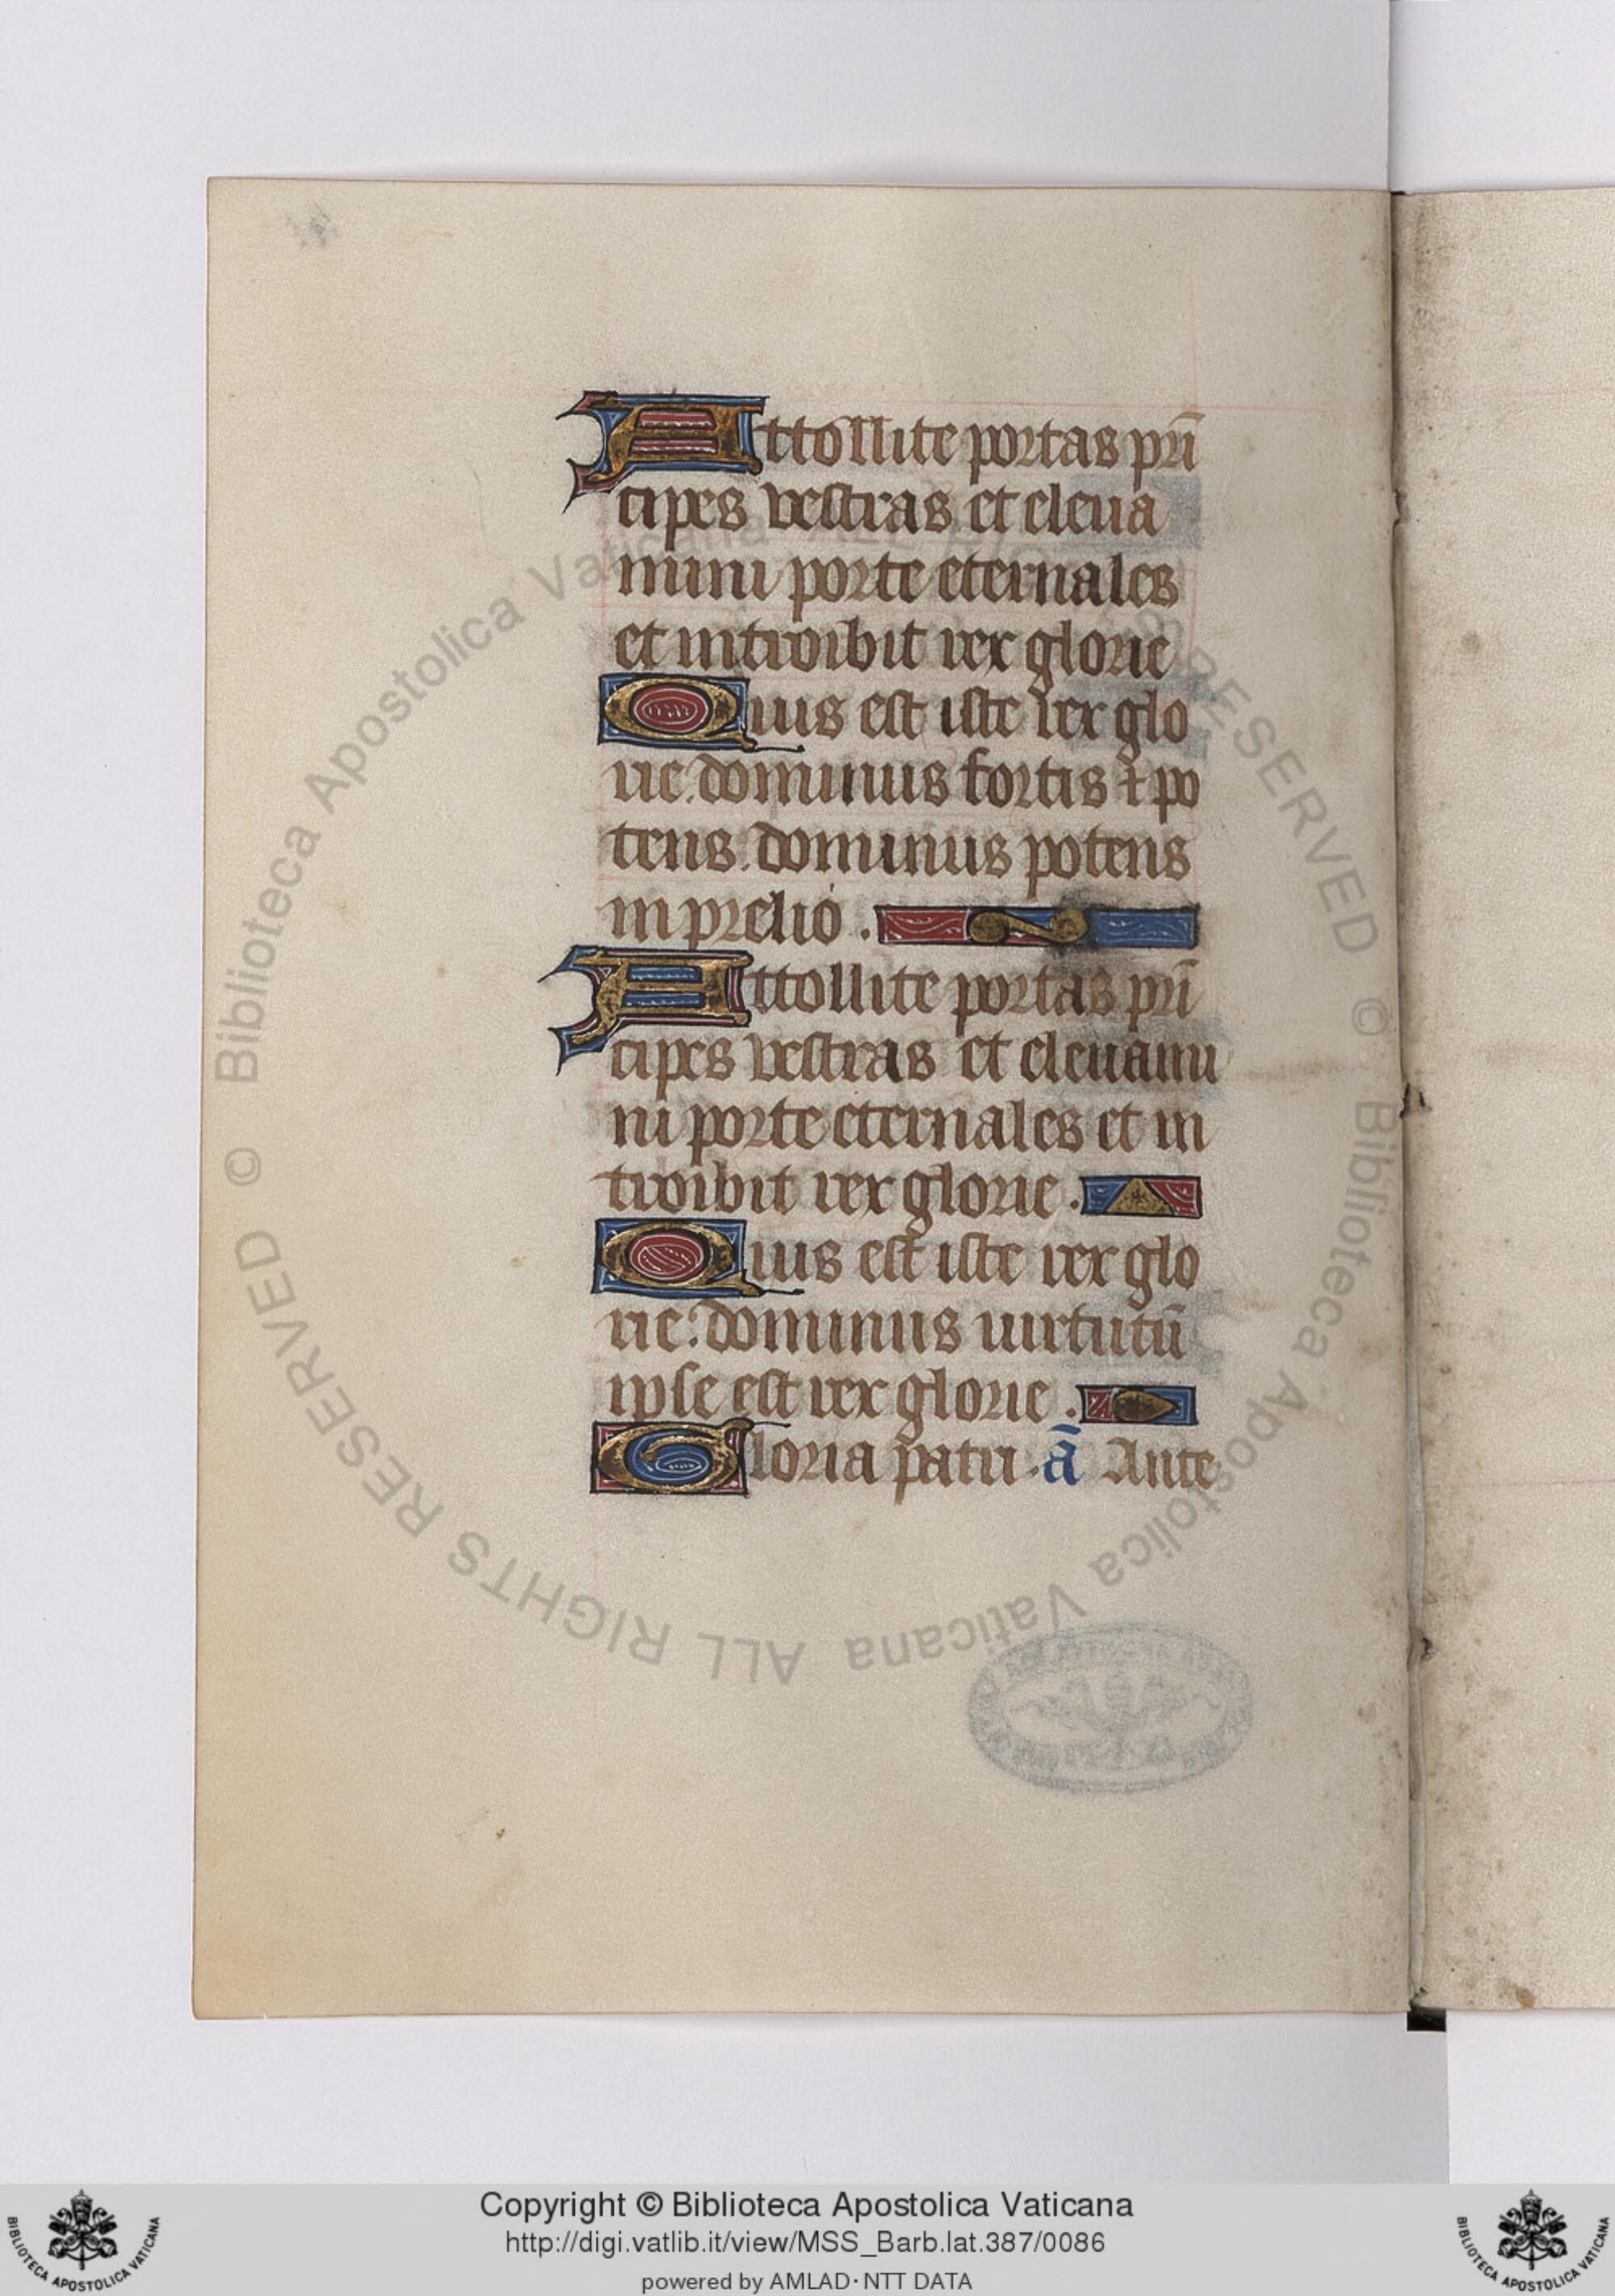 Attollite portas pri̅
cipes vestras et eleua
mini porte eternales
et introibit rex glorie
Quis est iste rex glo
rie. dominus fortis ⁊ po
tens. dominus potens
in prelio .
Attollite portas pri̅
cipes vestras et eleuami
ni porte eternales et in
troibit rex glorie .
Quis est iste rex glo
rie: dominus uirtutu̅
ipse est rex glorie .
Gloria patri . a̅ Ante
© Biblioteca Apostolica Vaticana ALL RIGHTS RESERVED
© Biblioteca Apostolica Vaticana ALL RIGHTS RESERVED
Copyright © Biblioteca Apostolica Vaticana
http://digi.vatlib.it/view/MSS_Barb.lat.387/0086
powered by AMLAD · NTT DATA
BIBLIOTECA APOSTOLICA VATICANA
BIBLIOTECA APOSTOLICA VATICANA